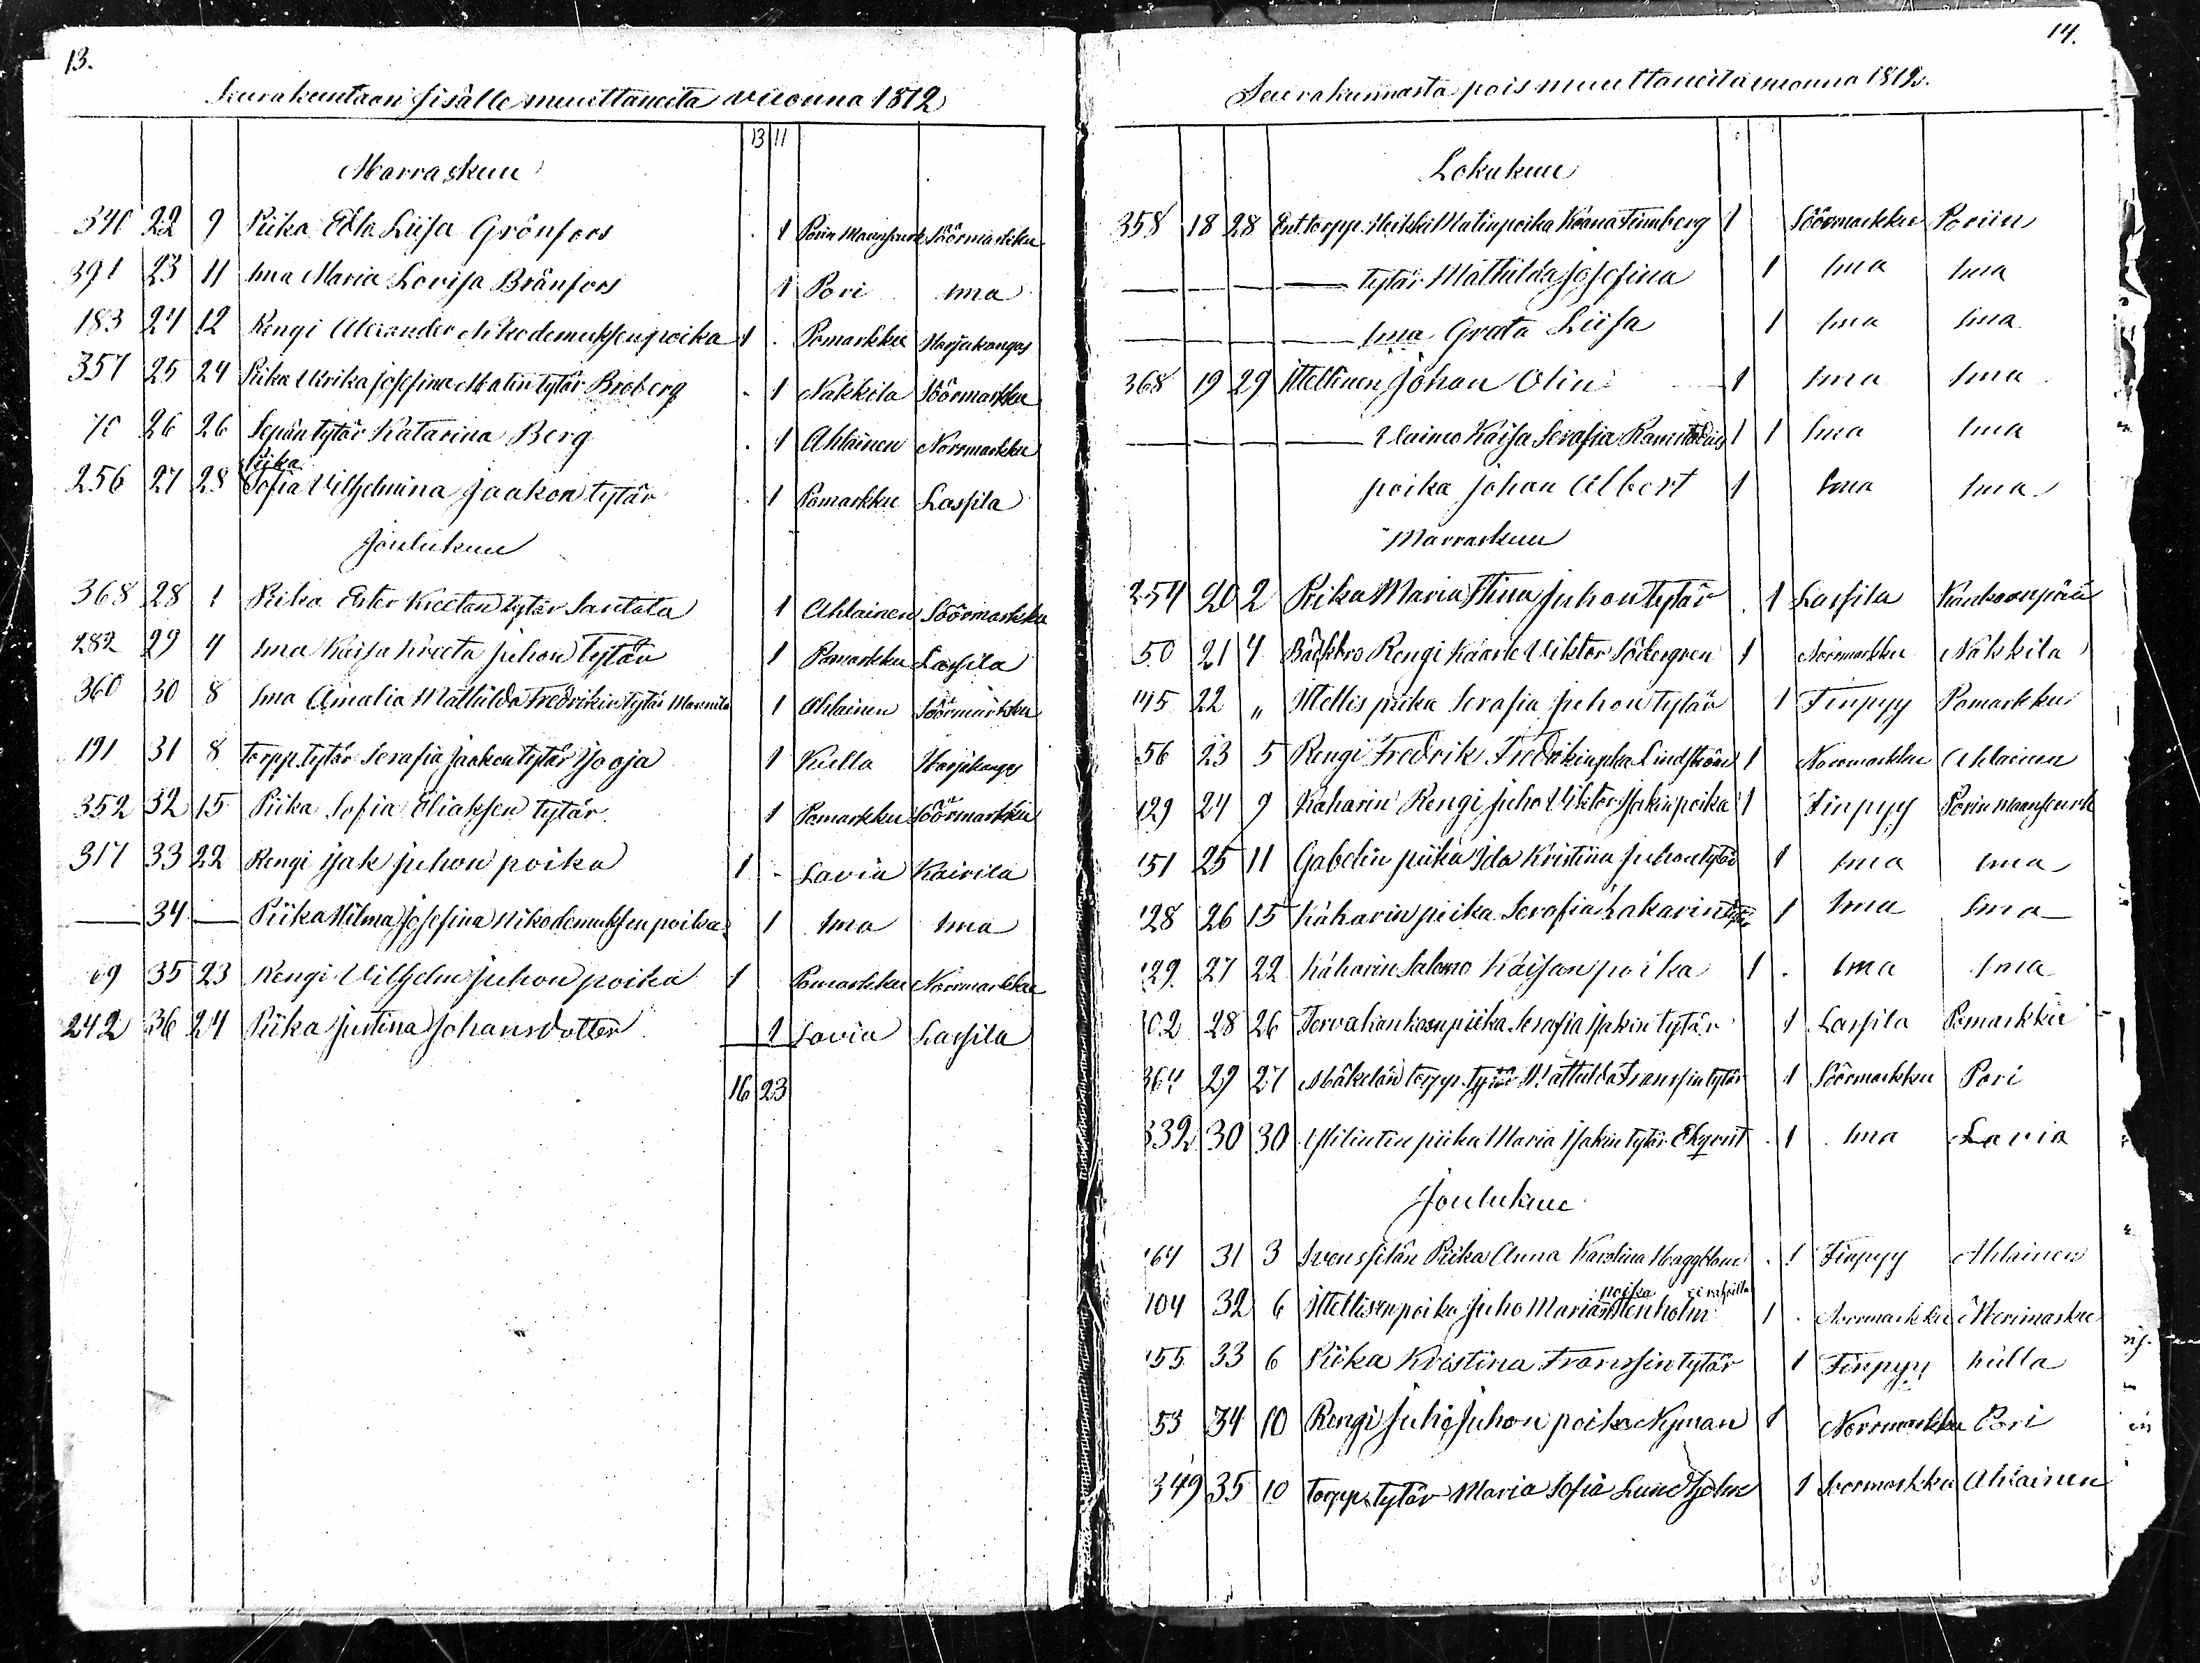 13.
Seurakuntaan sisälle muuttaneita vuonna 1872
13 11
Marraskuu
340 22 9 Piika Edla Liisa Grönfors . 1 Porin Maaseurk Söörmarkku
391 23 11 sma Maria Lovisa Bränfors 1 Pori sma
183 24 12 Rengi Alexander Nikodemuksenpoika 1 . Pomarkku Harjakangas
357 25 24 Piika Ulrika Josefina Matintytär Broberg . 1 Nakkila Söörmarkku
70 26 26 Sepän tytär Katarina Berg . 1 Ahlainen Norrmarkku
Piika
256 27 28 Sofia Vilhelmina Jaakontytär . 1 Pomarkku Lassila
Joulukuu
368 28 1 Piika Ester Kreetan tytär Santala 1 Ahlainen Söörmarkku
282 29 4 sma Kaisa Kreeta Juhontytär 1 Pomarkku Lassila
360 30 8 sma Amalia Mattilda Fredrikintytär Mannila 1 Ahlainen Söörmarkku
191 31 8 torpp.tytär Serafia Jaakontytär 1 Kulla Harjakangas
352 32 15 Piika Sofia Eliaksen tytär 1 Pomarkku Söörmarkku
317 33 22 Rengi Isak Juhonpoika 1 - Lavia Kairila
— 34 — Piika Hilma Josefina Nikodemuksenpoika 1 sma sma
69 35 23 Rengi Vilhelm Juhonpoika 1 Pomarkku Norrmarkku
242 36 24 Piika Justina Johansdotter 1 Lavia Lassila
16 23
14.
Seurakunnasta pois muuttaneita vuonna 1872.
Lokakuu
358 18 28 Ent.torpp. Heikki Matinpoika Finnberg 1 Söörmarkku Poriin
— — — tytär Mattilda Josefina 1 sma sma
— — — sma Greta Liisa 1 sma sma
368 19 29 Ittellinen Johan Olin 1 sma sma
— — — Vaimo Kaisa Serafia 1 1 sma sma
poika Johan Albert 1 sma sma
Marraskuu
254 20 2 Piika Maria Stina Juhontytär . 1 Lassila Kankaanpää
50 21 4 Bäckbro Rengi Kaarle Viktor Södergren 1 Norrmarkku Nakkila
145 22 „ Ittellis piika Serafia Juhontytär 1 Finpyy Pomarkku
56 23 5 Rengi Fredrik Fredrikinpka Lindström 1 Norrmarkku Ahlainen
129 24 9 Kaharin Rengi Juho Viktor Isakinpoika 1 Finpyy Porin Maaseurk
151 25 11 Gabelin piika Ida Kristiina Juhontytär 1 sma sma
128 26 15 Kaharin piika Serafia Sakarintytär 1 sma sma
129 27 22 Kaharin Salomo Kaisanpoika 1 . sma sma
102 28 26 Tervahaukasnpiika Serafia Isakintytär 1 Lassila Pomarkku
364 29 27 Mäkelän torpp. tytär Mattilda Franssintytär 1 Söörmarkku Pori
339 30 30 Ylilintin piika Maria Isakintytär Ekqvist . 1 sma Lavia
Joulukuu
164 31 3 Svenssilän Piika Anna Karolina Häggblom . 1 Finpyy Ahlainen
poika
104 32 6 Ittellisen poika Juho Marian Stenholm 1 . Norrmarkku Merimasku
155 33 6 Piika Kristina Franssintytär 1 Finpyy Kulla
53 34 10 Rengi Juho Juhonpoika Nyman 1 Norrmarkku Pori
349 35 10 torpp.tytär Maria Sofia 1 Söörmarkku Ahlainen